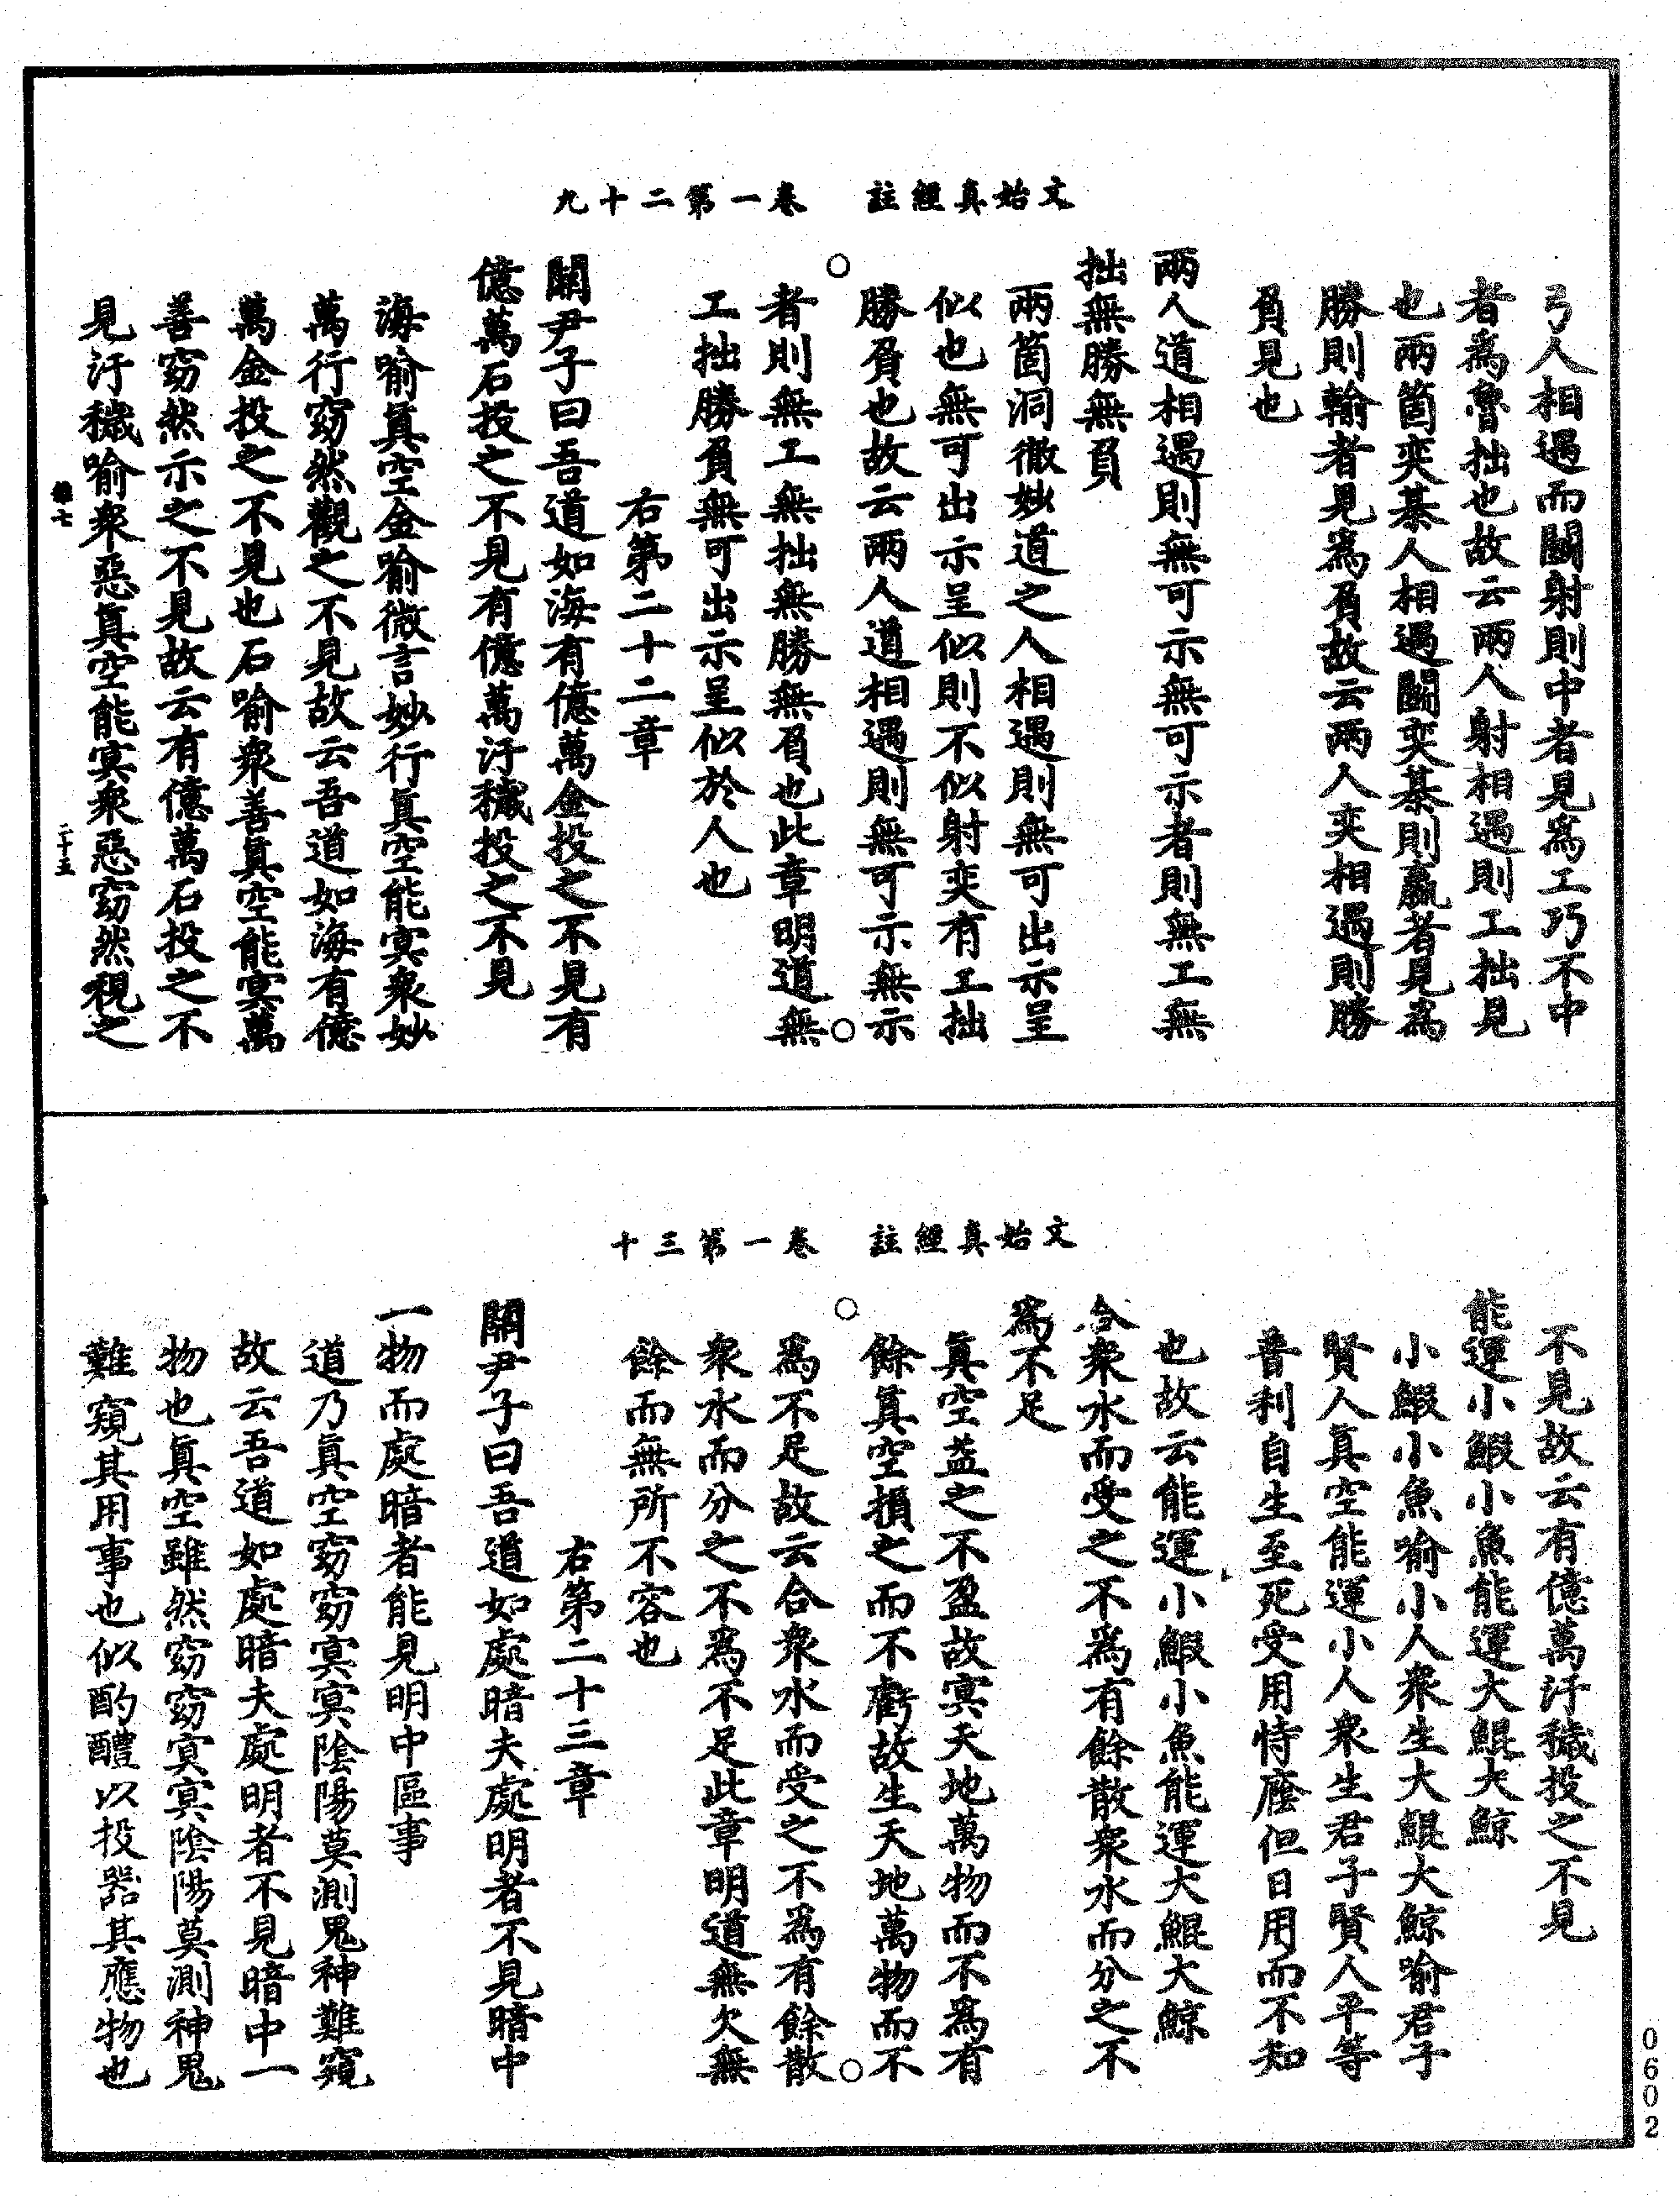 文始真經註　卷一第二十九
弓人相遇而鬭射則中者見爲工巧不中
者爲魯拙也故云兩人射相遇則工拙見
也兩箇奕棊人相遇鬭奕棊則贏者見爲
勝則輸者見爲負故云兩人奕相遇則勝
負見也
兩人道相遇則無可示無可示者則無工無
拙無勝無負
兩箇洞徹妙道之人相遇則無可出示呈
似也無可出示呈似則不似射奕有工拙
勝負也故云兩人道相遇則無可示無示
者則無工無拙無勝無負也此章明道無
工拙勝負無可出示呈似於人也
右第二十二章
關尹子曰吾道如海有億萬金投之不見有
億萬石投之不見有億萬汙穢投之不見
海喻眞空金喻微言妙行眞空能冥衆妙
萬行窈然觀之不見故云吾道如海有億
萬金投之不見也石喻衆善眞空能冥萬
善窈然示之不見故云有億萬石投之不
見汙穢喻衆惡眞空能冥衆惡窈然視之
難七
二十五
文始真經註　卷一第三十
不見故云有億萬汙穢投之不見
能運小鰕小魚能運大鯤大鯨
小鰕小魚喻小人衆生大鯤大鯨喻君子
賢人真空能運小人衆生君子賢人平等
普利自生至死受用恃廕但日用而不知
也故云能運小鰕小魚能運大鯤大鯨
合衆水而受之不爲有餘散衆水而分之不
爲不足
眞空益之不盈故冥天地萬物而不爲有
餘眞空損之而不虧故生天地萬物而不
爲不足故云合衆水而受之不爲有餘散
衆水而分之不爲不足此章明道無欠無
餘而無所不容也
右第二十三章
關尹子曰吾道如處暗夫處明者不見暗中
一物而處暗者能見明中區事
道乃眞空窈窈冥冥陰陽莫測鬼神難窺
故云吾道如處暗夫處明者不見暗中一
物也眞空雖然窈窈冥冥陰陽莫測神鬼
難窺其用事也似酌醴以投器其應物也
0602